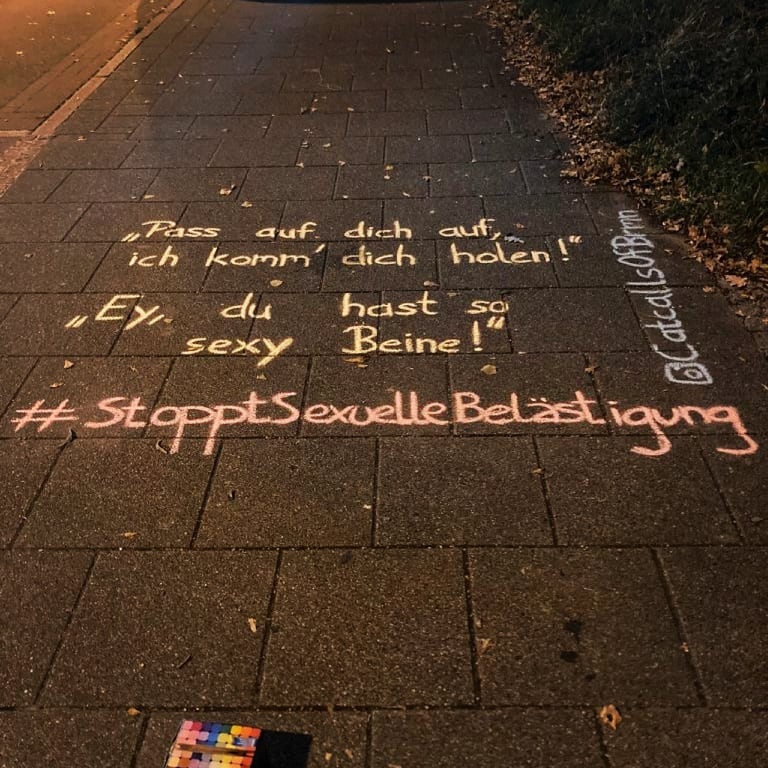 „Pass auf dich auf,
ich komm' dich holen!“
„Ey, du hast so
sexy Beine!“
#StopptSexuelleBelästigung
@CatcallsOfBrmn